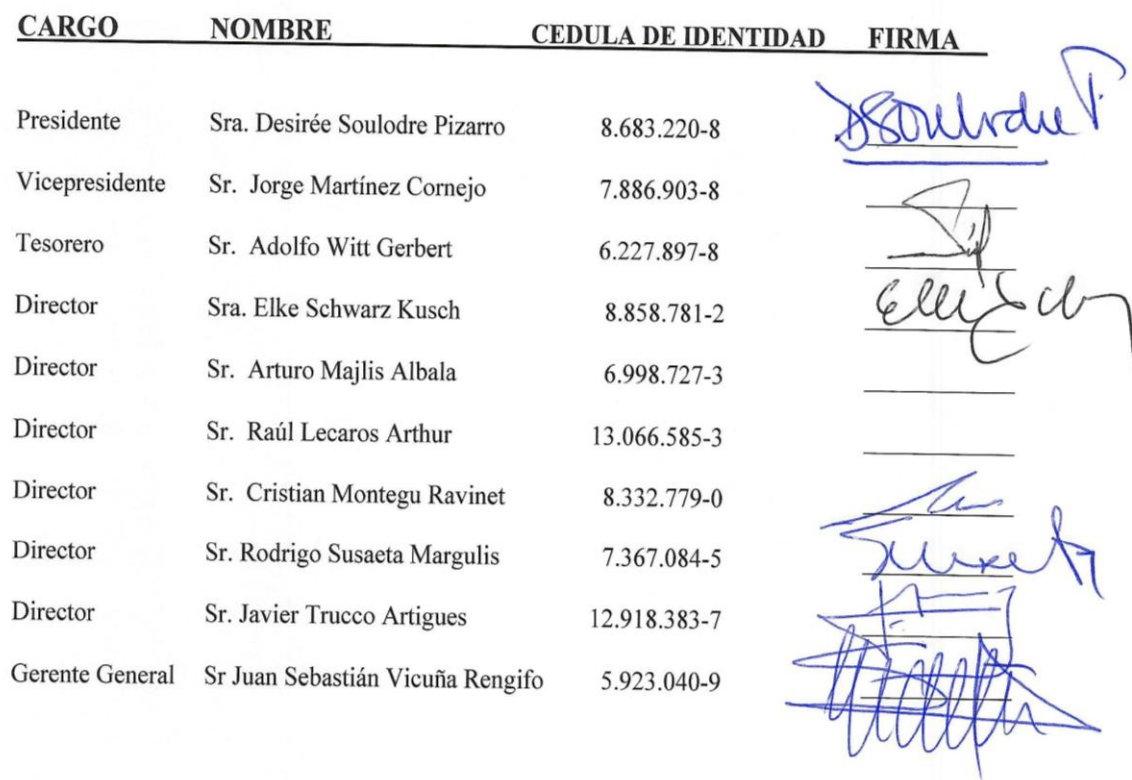 CARGO NOMBRE CEDULA DE IDENTIDAD FIRMA
Presidente Sra. Desirée Soulodre Pizarro 8.683.220-8 DSoulodre P.
Vicepresidente Sr. Jorge Martínez Cornejo 7.886.903-8
Tesorero Sr. Adolfo Witt Gerbert 6.227.897-8
Director Sra. Elke Schwarz Kusch 8.858.781-2
Director Sr. Arturo Majlis Albala 6.998.727-3
Director Sr. Raúl Lecaros Arthur 13.066.585-3
Director Sr. Cristian Montegu Ravinet 8.332.779-0
Director Sr. Rodrigo Susaeta Margulis 7.367.084-5
Director Sr. Javier Trucco Artigues 12.918.383-7
Gerente General Sr Juan Sebastián Vicuña Rengifo 5.923.040-9